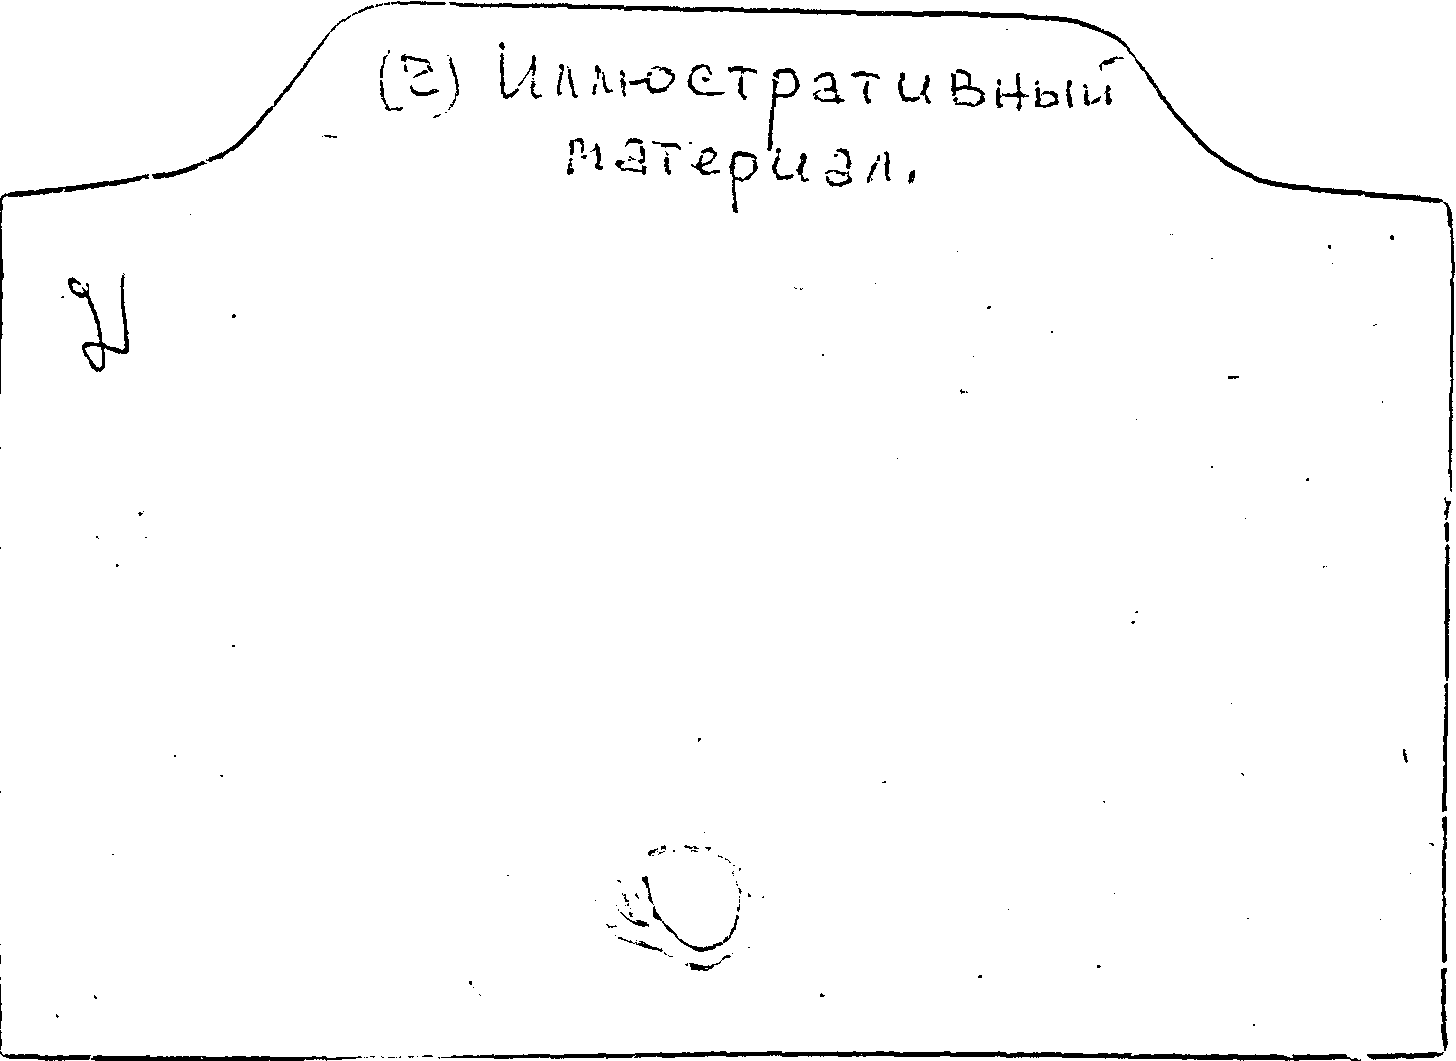 (2) Иллюстративный
материал.